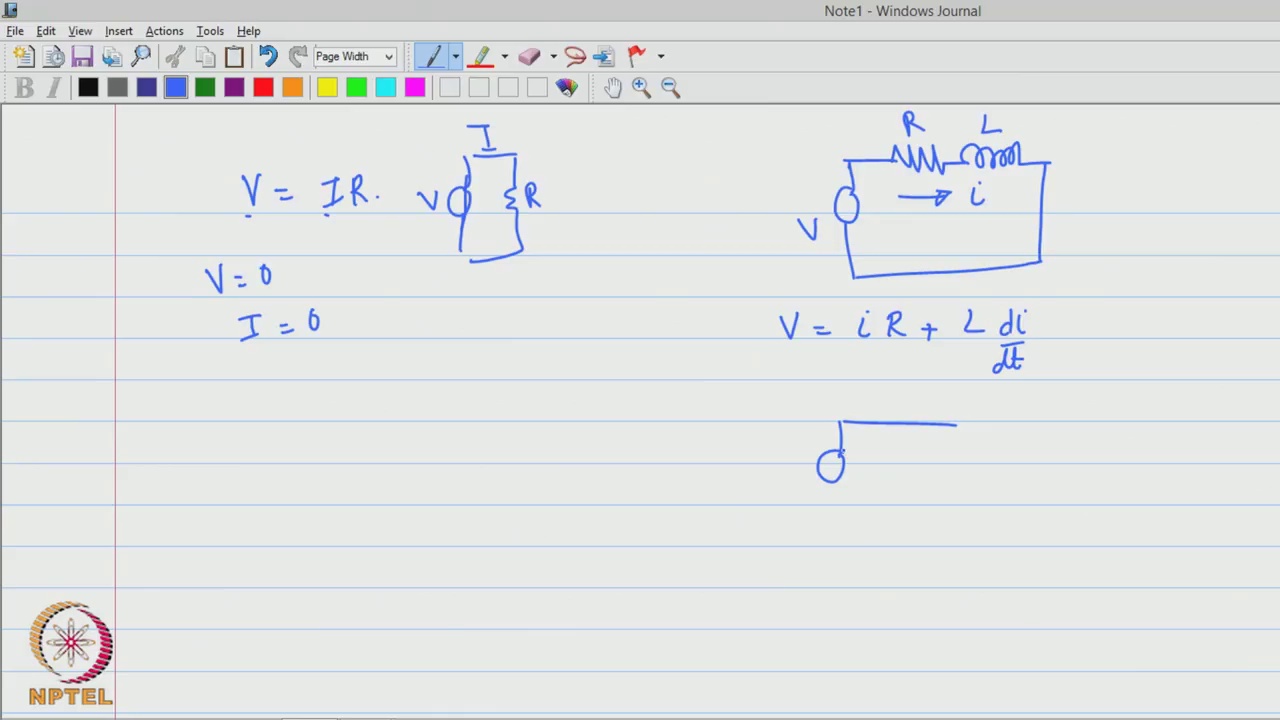 Note1 - Windows Journal
File Edit View Insert Actions Tools Help
Page Width
B I
V = IR.
I
V
R
V = 0
I = 0
R L
i
V
V = i R + L di/dt
NPTEL